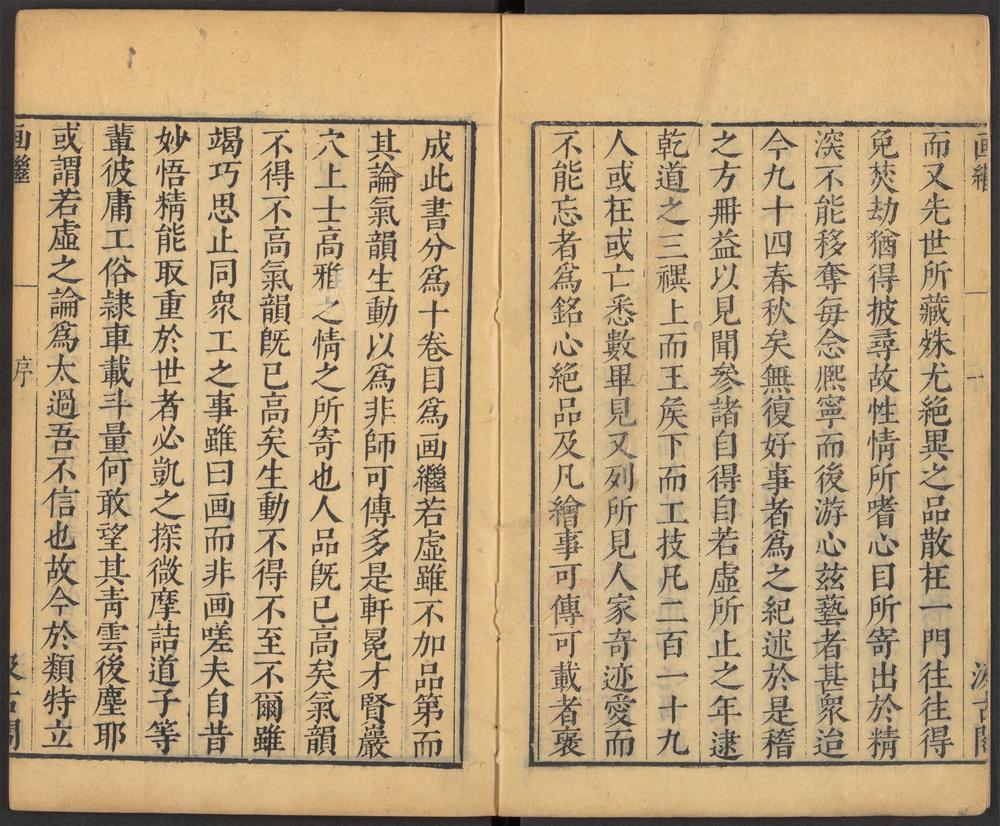 画繼 一 一 汲古閣
而又先世所藏姝尤絶異之品散在一門往往得
免焚劫猶得披尋故性情所嗜心目所寄出於精
深不能移奪每念熈寧而後游心茲藝者甚衆迨
今九十四春秋矣無復好事者爲之紀述於是稽
之方冊益以見聞參諸自得自若虛所止之年逮
乾道之三禩上而王矦下而工技凡二百一十九
人或在或亡悉數畢見又列所見人家奇迹愛而
不能忘者爲銘心絶品及凡繪事可傳可載者裒
成此書分爲十卷目爲画繼若虛雖不加品第而
其論氣韻生動以爲非師可傳多是軒冕才賢巖
穴上士高雅之情之所寄也人品旣已高矣氣韻
不得不高氣韻旣已高矣生動不得不至不爾雖
竭巧思止同衆工之事雖曰画而非画嗟夫自昔
妙悟精能取重於世者必凱之探微摩詰道子等
輩彼庸工俗隷車載斗量何敢望其靑雲後塵耶
或謂若虛之論爲太過吾不信也故今於類特立
画繼 序 汲古閣